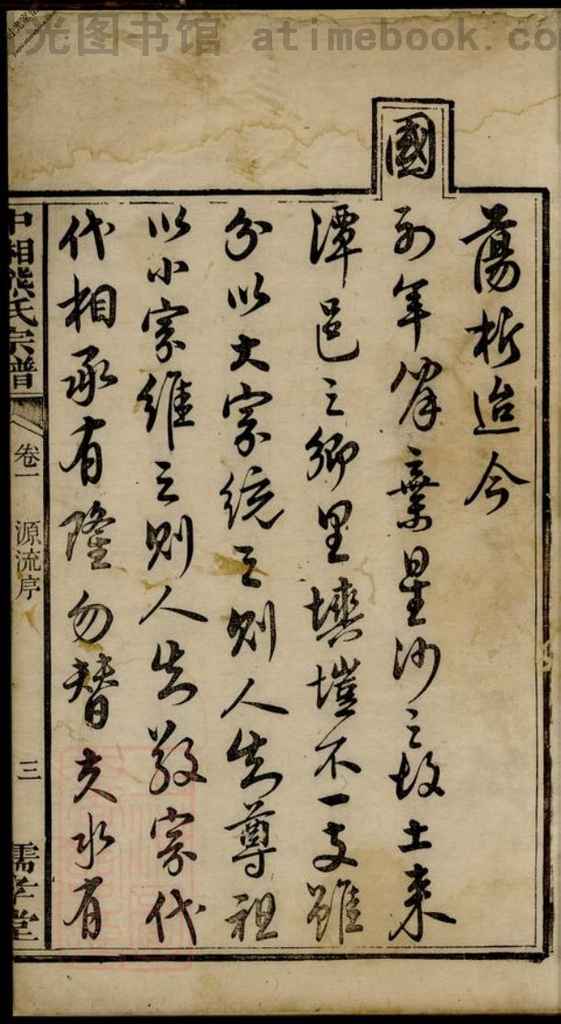 光图书馆 atimebook.co
蕩析迨今
國初年棄星沙之故土来
潭邑之鄉里塏不一支雖
分以大宗統之則人知尊祖
以小宗維之則人知敬宗代
代相承有隆勿替夫水有
中湘熊氏宗譜
卷一 源流序
三
孝堂